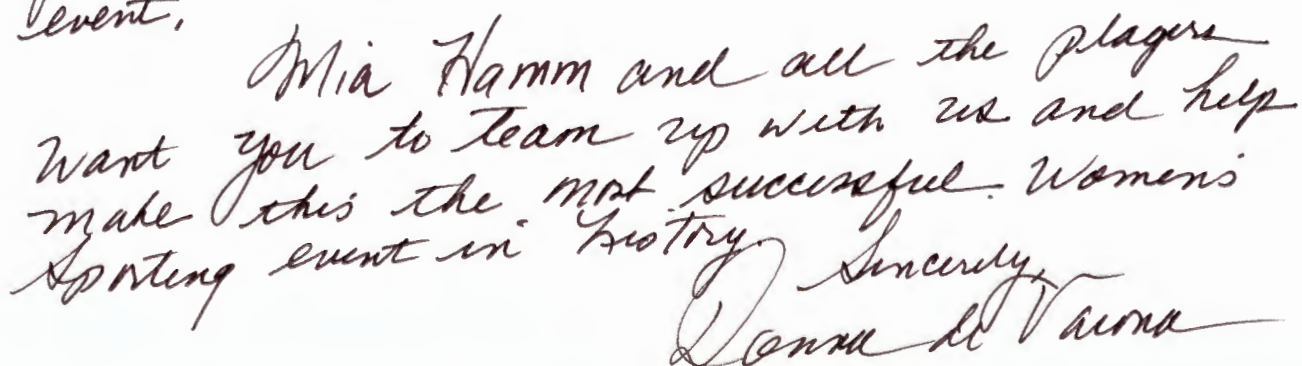 event.
Mia Hamm and all the players
want you to team up with us and help
make this the most successful Women's
Sporting event in history.
Sincerely,
Donna de Varona